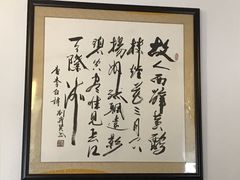 故人西辭黃鶴
樓煙花三月下
揚州孤帆遠影
碧空盡惟見長江
天際流